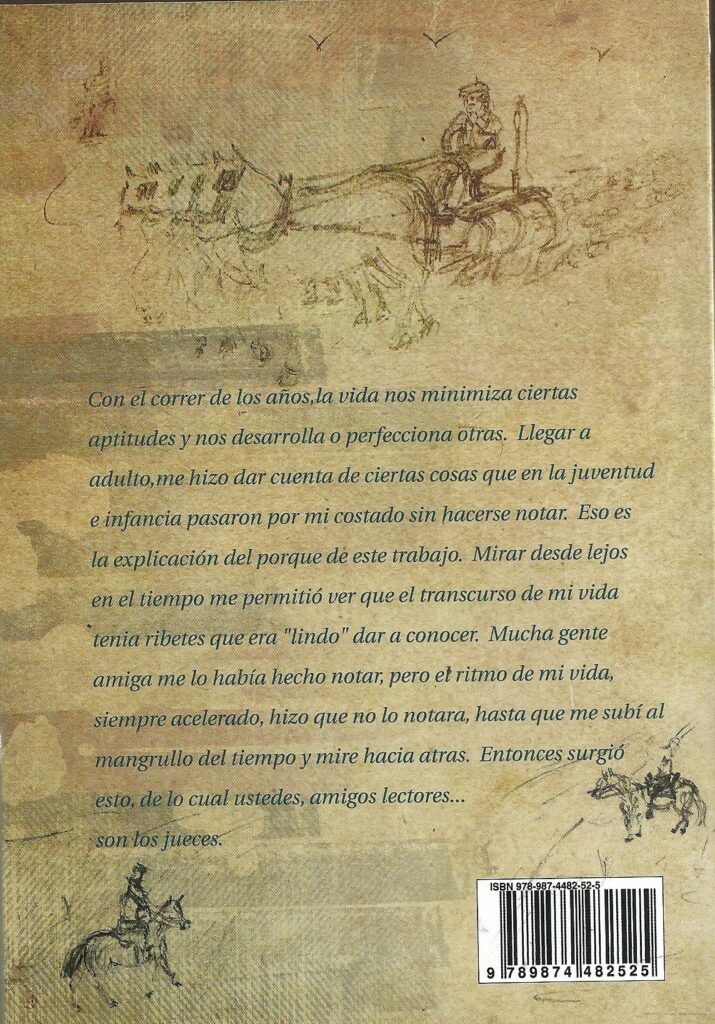 Con el correr de los años,la vida nos minimiza ciertas
aptitudes y nos desarrolla o perfecciona otras. Llegar a
adulto,me hizo dar cuenta de ciertas cosas que en la juventud
e infancia pasaron por mi costado sin hacerse notar. Eso es
la explicación del porque de este trabajo. Mirar desde lejos
en el tiempo me permitió ver que el transcurso de mi vida
tenia ribetes que era "lindo" dar a conocer. Mucha gente
amiga me lo había hecho notar, pero el ritmo de mi vida,
siempre acelerado, hizo que no lo notara, hasta que me subí al
mangrullo del tiempo y mire hacia atras. Entonces surgió
esto, de lo cual ustedes, amigos lectores...
son los jueces.
ISBN 978-987-4482-52-5
9 789874 482525